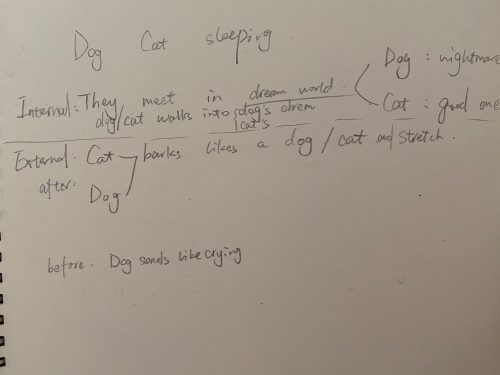 Dog Cat sleeping
Dog : nightmare
Internal: They meet in dream world.
Cat : good one
dog/cat walks into dog's
cat's
External: Cat barks likes a dog / cat and stretch.
after: Dog
before: Dog sonds like crying